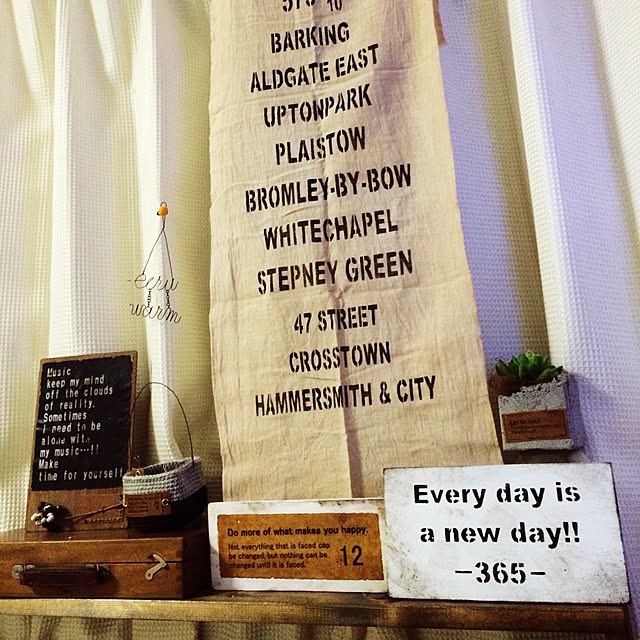 BARKING
ALDGATE EAST
UPTONPARK
PLAISTOW
BROMLEY-BY-BOW
WHITECHAPEL
STEPNEY GREEN
47 STREET
CROSSTOWN
HAMMERSMITH & CITY
ecru
warm
Music
keep my mind
off the clouds
of reality.
Sometimes
I need to be
alone with
my music···!!
Make
time for yourself
Do more of what makes you happy.
Not everything that is faced can
be changed, but nothing can be
changed until it is faced.
12
Every day is
a new day!!
-365-